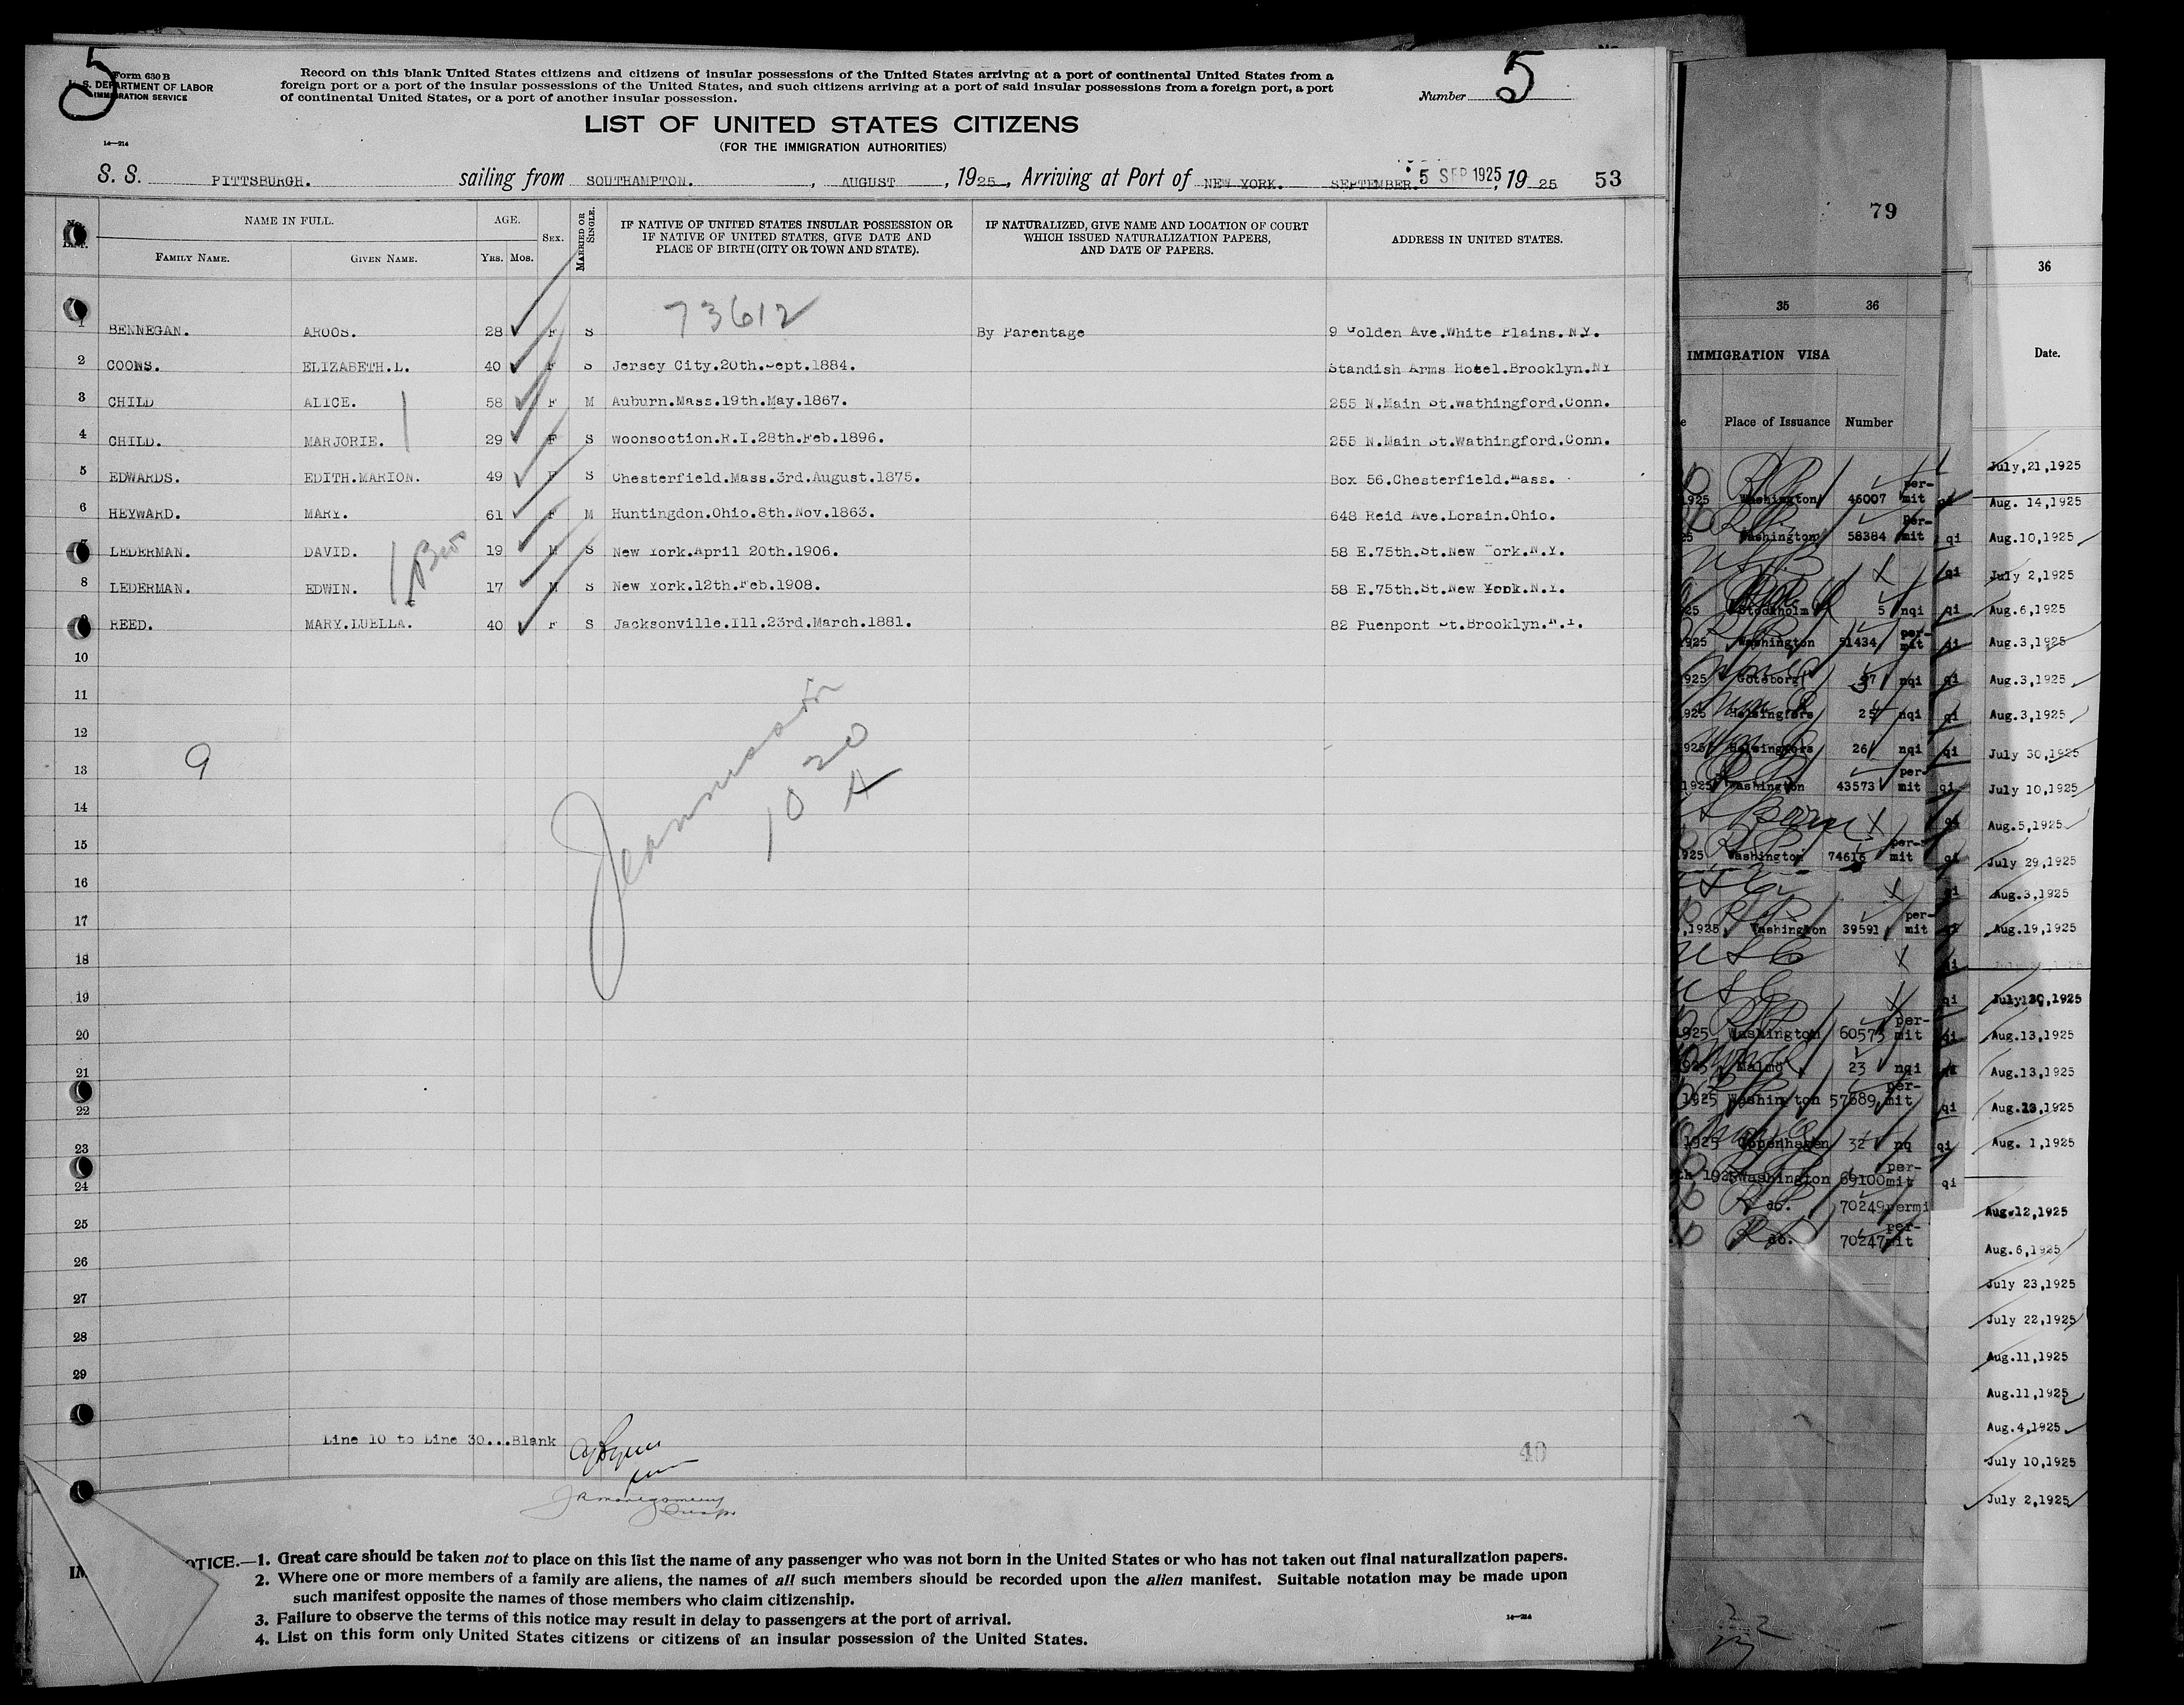 5
Form 630 B
U. S. DEPARTMENT OF LABOR
IMMIGRATION SERVICE
14—214
Record on this blank United States citizens and citizens of insular possessions of the United States arriving at a port of continental United States from a
foreign port or a port of the insular possessions of the United States, and such citizens arriving at a port of said insular possessions from a foreign port, a port
of continental United States, or a port of another insular possession.
Number 5
LIST OF UNITED STATES CITIZENS
(FOR THE IMMIGRATION AUTHORITIES)
S. S. PITTSBURGH. sailing from SOUTHAMPTON. , AUGUST , 1925, Arriving at Port of NEW YORK. SEPTEMBER. 5 SEP 1925, 1925 53
NAME IN FULL. AGE. SEX. MARRIED OR SINGLE.
FAMILY NAME. GIVEN NAME. YRS. MOS.
IF NATIVE OF UNITED STATES INSULAR POSSESSION OR
IF NATIVE OF UNITED STATES, GIVE DATE AND
PLACE OF BIRTH (CITY OR TOWN AND STATE).
IF NATURALIZED, GIVE NAME AND LOCATION OF COURT
WHICH ISSUED NATURALIZATION PAPERS,
AND DATE OF PAPERS.
ADDRESS IN UNITED STATES.
73612
1 BENNEGAN. AROOS. 28 F S By Parentage 9 Golden Ave.White Plains.N.Y.
2 COONS. ELIZABETH.L. 40 F S Jersey City.20th.Sept.1884. Standish Arms Hotel.Brooklyn.NY
3 CHILD ALICE. 58 F M Auburn.Mass.19th.May.1867. 255 N.Main St.Wathingford.Conn.
4 CHILD. MARJORIE. 29 F S Woonsoction.R.I.28th.Feb.1896. 255 N.Main St.Wathingford.Conn.
5 EDWARDS. EDITH.MARION. 49 F S Chesterfield.Mass.3rd.August.1875. Box 56.Chesterfield.Mass.
6 HEYWARD. MARY. 61 F M Huntingdon.Ohio.8th.Nov.1863. 648 Reid Ave.Lorain.Ohio.
7 LEDERMAN. DAVID. 19 M S New York.April 20th.1906. 58 E.75th.St.New York.N.Y.
Bros
8 LEDERMAN. EDWIN. 17 M S New York.12th.Feb.1908. 58 E.75th.St.New York.N.Y.
9 REED. MARY.LUELLA. 40 F S Jacksonville.Ill.23rd.March.1881. 82 Puenpont St.Brooklyn.N.Y.
10
11
12
9
13
10 20
A
14
15
16
17
18
19
20
21
22
23
24
25
26
27
28
29
Line 10 to Line 30...Blank
40
NOTICE.—1. Great care should be taken not to place on this list the name of any passenger who was not born in the United States or who has not taken out final naturalization papers.
2. Where one or more members of a family are aliens, the names of all such members should be recorded upon the alien manifest. Suitable notation may be made upon
such manifest opposite the names of those members who claim citizenship.
3. Failure to observe the terms of this notice may result in delay to passengers at the port of arrival.
4. List on this form only United States citizens or citizens of an insular possession of the United States.
14—214
79
35 36
IMMIGRATION VISA
Place of Issuance Number
1925 Washington 46007 permit
Washington 58384 permit
Stockholm 5 nqi
1925 Washington 51434 permit
1925 Goteborg 37 nqi
1925 Helsingfors 25 nqi
1925 Helsingfors 26 nqi
1925 Washington 43573 permit
1925 Washington 74616 permit
,1925, Washington 39591 permit
1925 Washington 60573 permit
1925 Malmo 23 nqi
1925 Washington 57689 permit
1925 Copenhagen 32 nq
1925 Washington 69100 permit
do. 70249 permi
do. 70247 permit
36
Date.
July,21,1925
Aug. 14,1925
qi Aug.10,1925
qi July 2,1925
qi Aug.6,1925
qi Aug.3,1925
qi Aug.3,1925
qi Aug.3,1925
qi July 30,1925
qi July 10,1925
qi Aug.5,1925
qi July 29,1925
qi Aug.3,1925
qi Aug.19,1925
qi
qi July 30,1925
qi Aug.13,1925
qi Aug.13,1925
qi Aug.19,1925
qi Aug. 1,1925
qi
Aug.12,1925
Aug.6,1925
July 23,1925
July 22,1925
Aug.11,1925
Aug.11,1925
Aug.4,1925
July 10,1925
July 2,1925